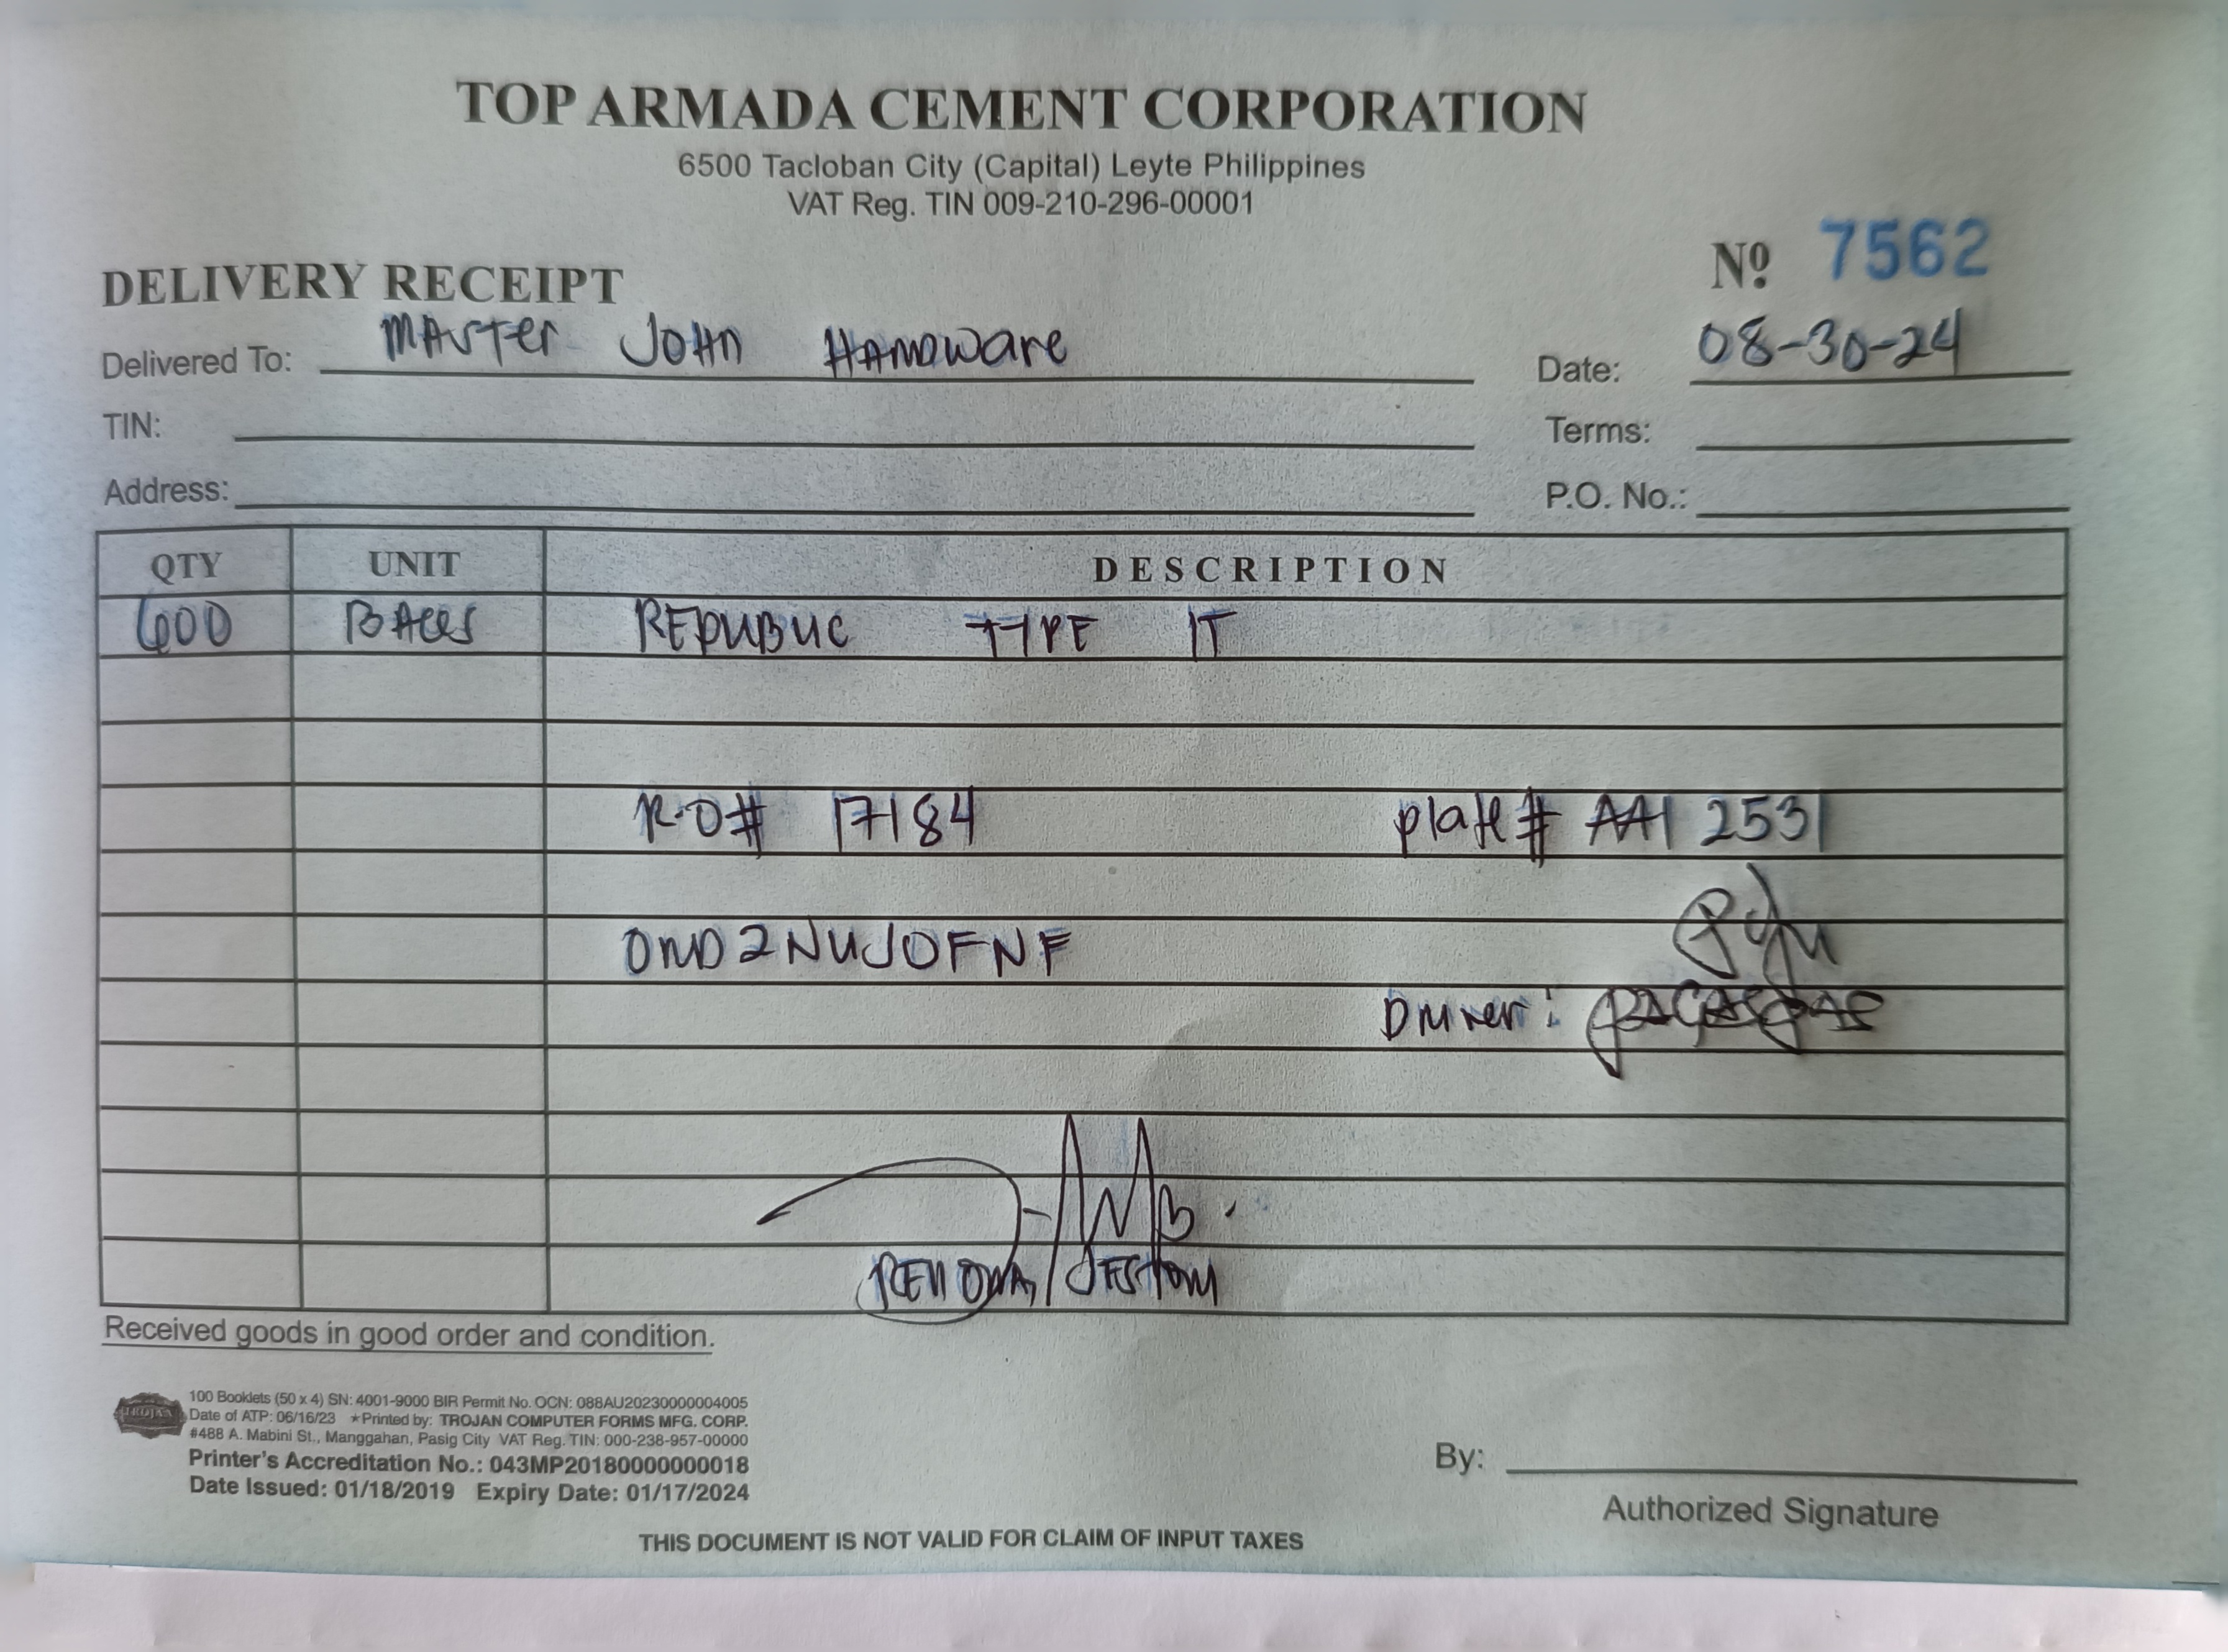 TOP ARMADA CEMENT CORPORATION
6500 Tacloban City (Capital) Leyte Philippines
VAT Reg. TIN 009-210-296-00001
Nº 7562
DELIVERY RECEIPT
Delivered To: MASTER JOHN HARDWARE Date: 08-30-24
TIN: Terms:
Address: P.O. No.:
QTY UNIT DESCRIPTION
600 BAGS REPUBLIC TYPE IT
R.O# 17184 plate# AAI 2531
OMD2NUJOFNF
Driver:
Received goods in good order and condition.
TROJAN
100 Booklets (50 x 4) SN: 4001-9000 BIR Permit No. OCN: 088AU20230000004005
Date of ATP: 06/16/23 ★Printed by: TROJAN COMPUTER FORMS MFG. CORP.
#488 A. Mabini St., Manggahan, Pasig City VAT Reg. TIN: 000-238-957-00000
Printer's Accreditation No.: 043MP20180000000018
Date Issued: 01/18/2019 Expiry Date: 01/17/2024
By:
Authorized Signature
THIS DOCUMENT IS NOT VALID FOR CLAIM OF INPUT TAXES